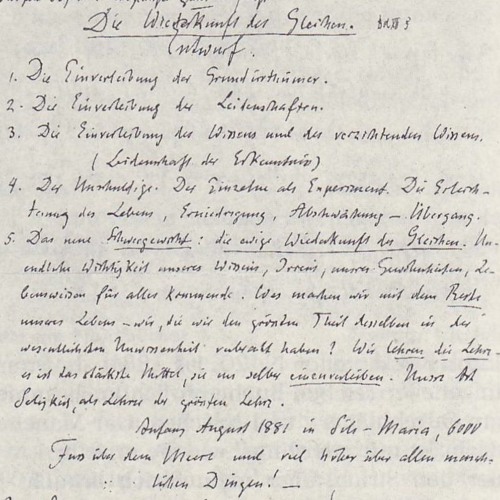 Die Wiederkunft des Gleichen.
Entwurf.
1. Die Einverleibung der Grundirrthümer.
2. Die Einverleibung der Leidenschaften.
3. Die Einverleibung des Wissens und des verzichtenden Wissens.
(Leidenschaft der Erkenntniss)
4. Der Unschuldige. Der Einzelne als Experiment. Die Erleich-
terung des Lebens, Erniedrigung, Abschwächung – Übergang.
5. Das neue Schwergewicht: die ewige Wiederkunft des Gleichen. Un-
endliche Wichtigkeit unseres Wissens, Irrens, unsrer Gewohnheiten, Le-
bensweisen für alles Kommende. Was machen wir mit dem Reste
unseres Lebens – wir, die wir den grössten Theil desselben in der
wesentlichsten Unwissenheit verbracht haben? Wir lehren die Lehre –
es ist das stärkste Mittel, sie uns selber einzuverleiben. Unsre Art
Seligkeit, als Lehrer der grössten Lehre.
Anfang August 1881 in Sils-Maria, 6000
Fuss über dem Meere und viel höher über allen mensch-
lichen Dingen! –